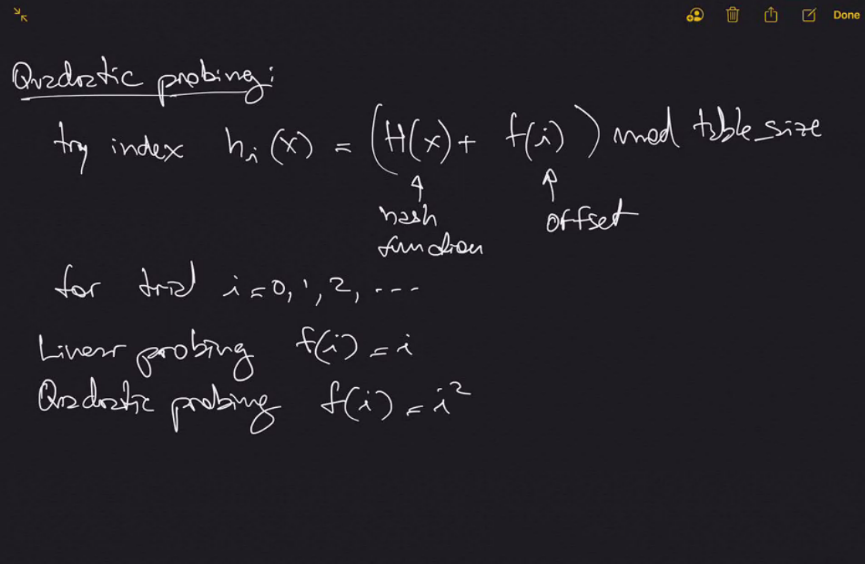 Done
Quadratic probing:
try index hᵢ(x) = (H(x) + f(i)) mod table_size
↑ ↑
hash function offset
for trial i = 0, 1, 2, ---
Linear probing f(i) = i
Quadratic probing f(i) = i²